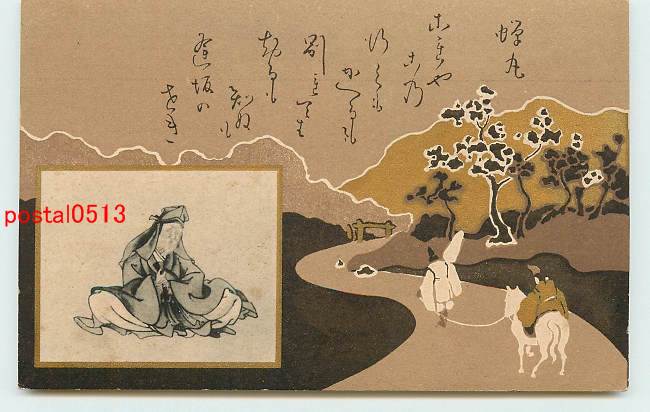 蝉丸
これや
この
行くも
かへるも
別れては
しるも
知ぬも
逢坂の
せき
postal0513